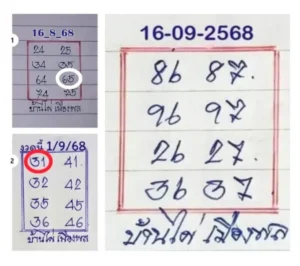 1
16_8_68
24 25
34 35
64 65
74 75
บ้านไผ่ เมืองพล
2
งวดนี้ 1/9/68
31 41
32 42
35 45
36 46
บ้านไผ่ เมืองพล
16-09-2568
86 87.
96 97
26 27.
36 37
บ้านไผ่ เมืองพล